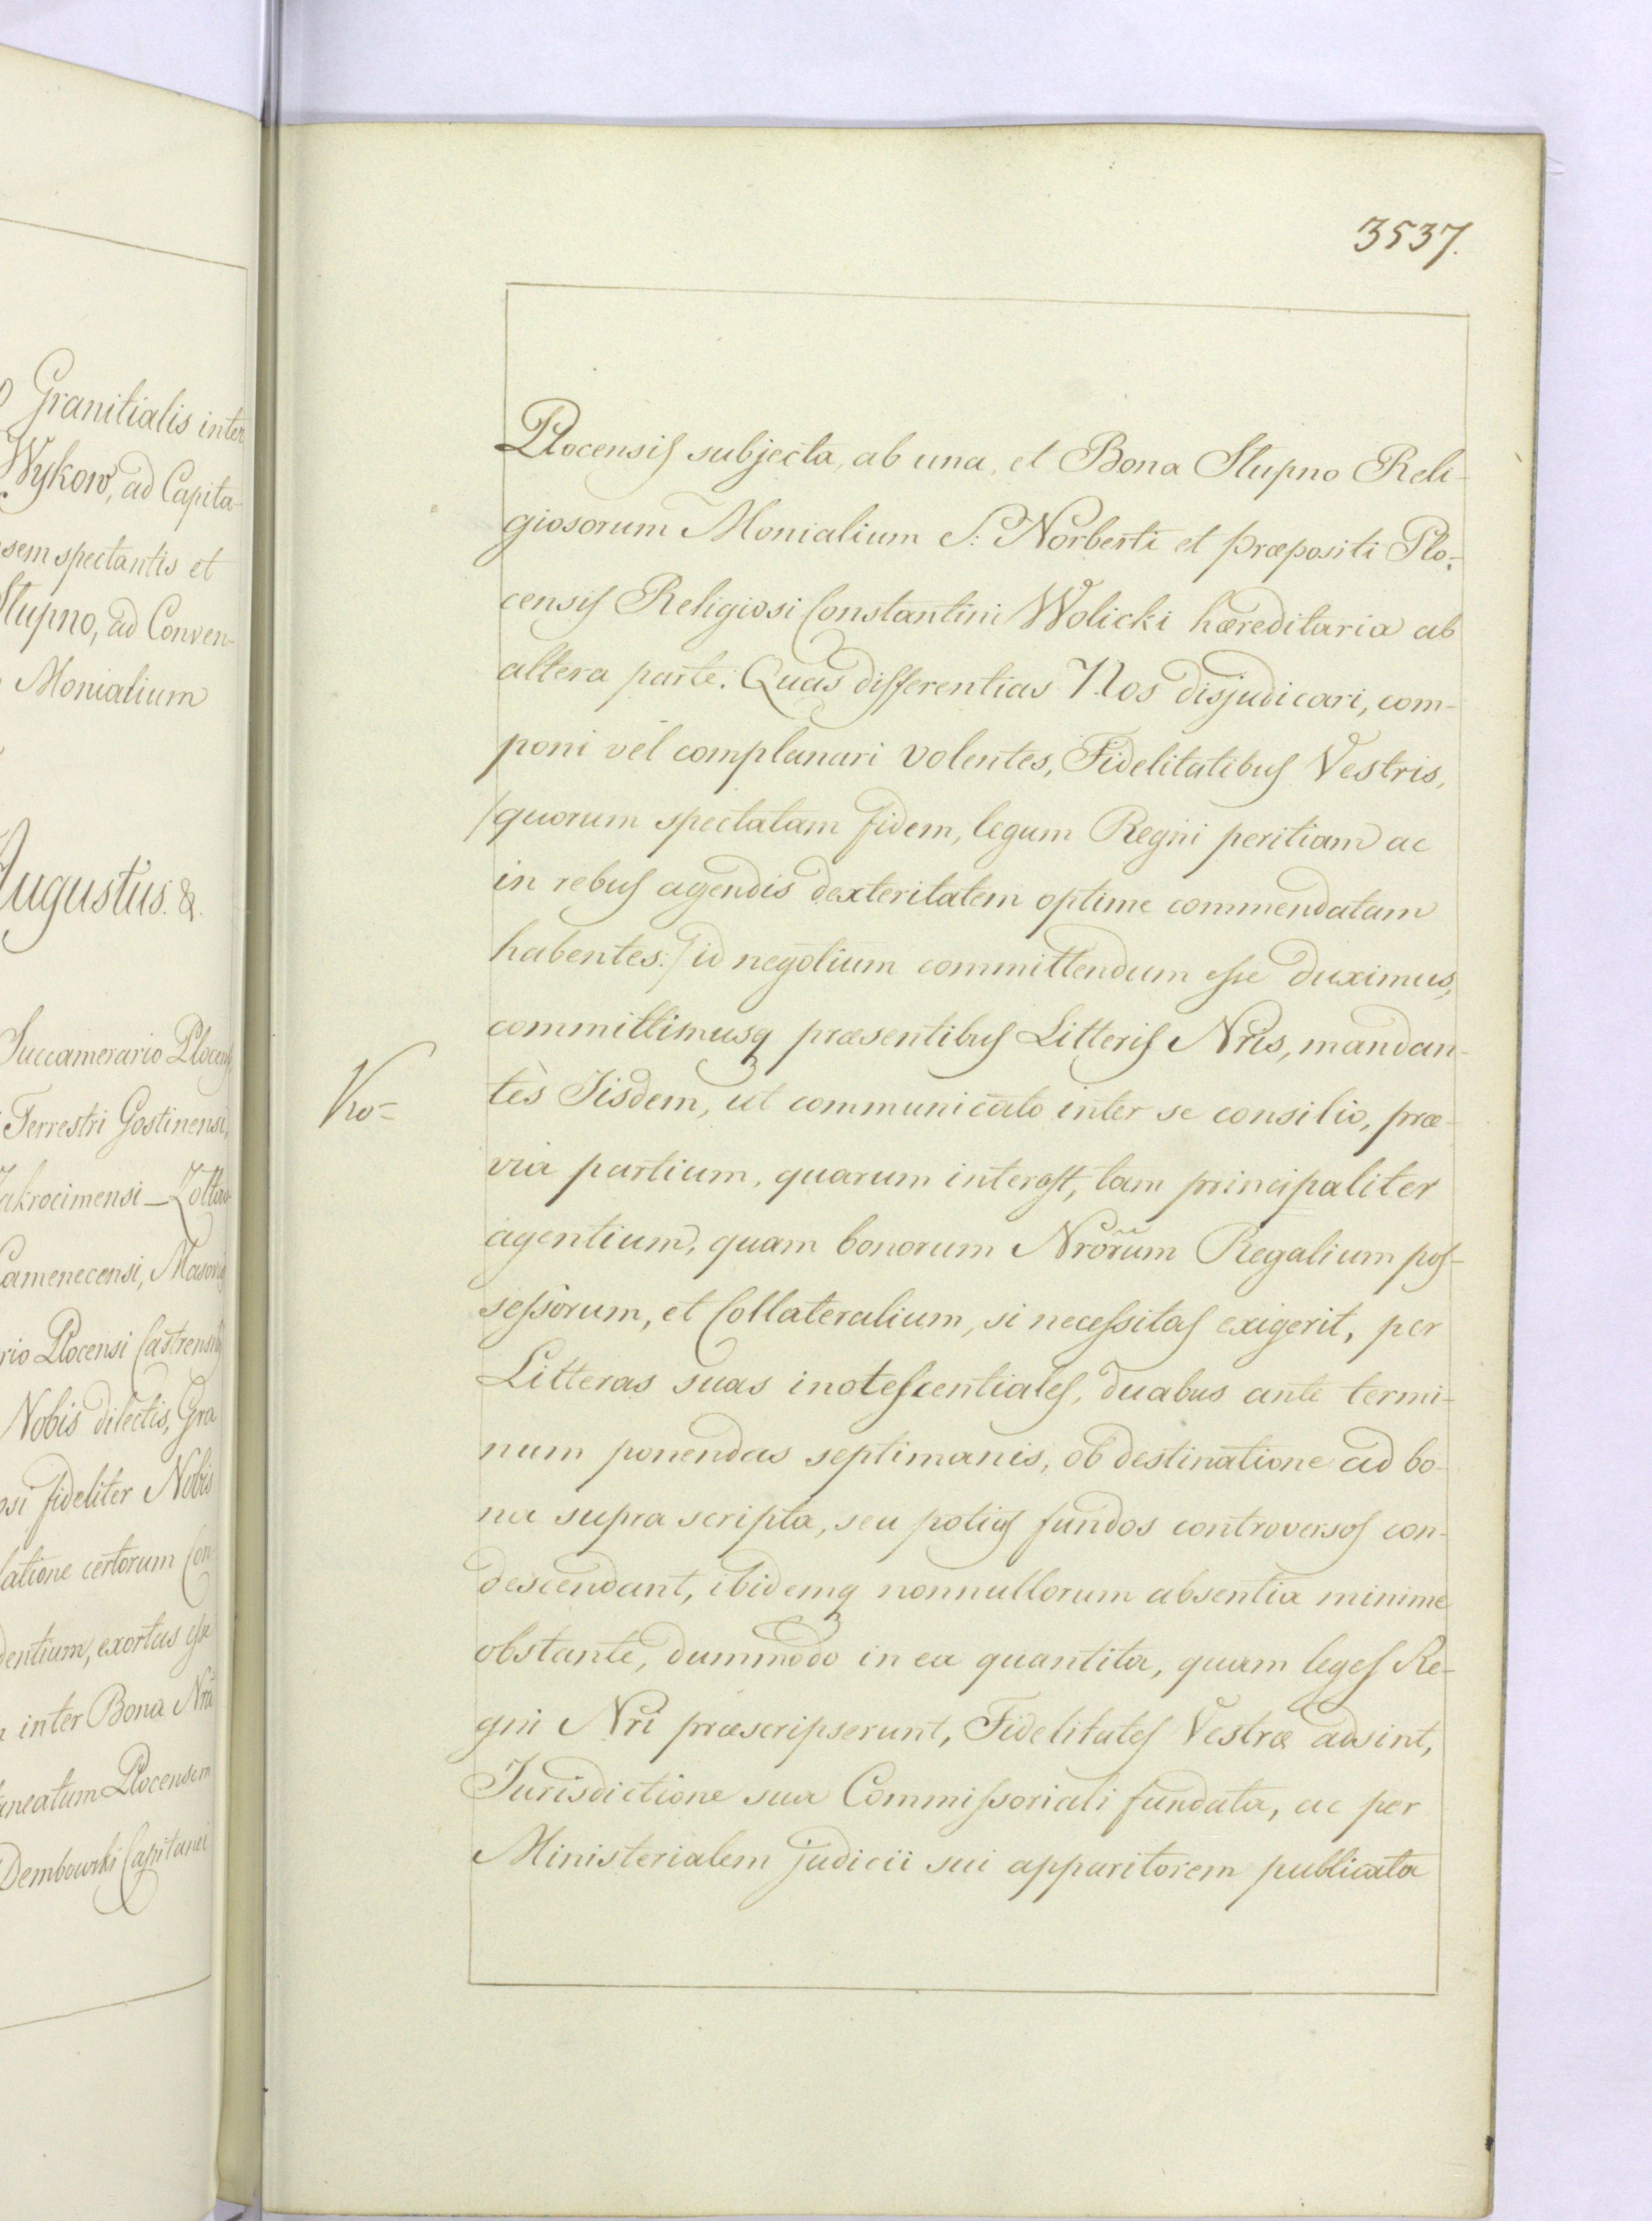 Granitialis inter
Wykow, ad Capita-
sem spectantis et
Stupno, ad Conven-
Monialium
Augustus. &.
Succamerario Plocens
Terrestri Gostinensi,
akrocimensi — Zottow
Camenecensi, Masovi
rio Plocensi Castrensi
Nobis dilectis, Gra
osi fideliter Nobis
latione certorum Con-
dentium, exortas esse
inter Bona Nra
aneatum Plocensem
Dembowski Capitanei
3537.
Plocensis subjecta, ab una, et Bona Stupno Reli-
giosorum Monialium S: Norberti et præpositi Plo-
censis Religiosi Constantini Wolicki hæreditaria ab
altera parte. Quas differentias Nos disjudicari, com-
poni vel complanari volentes, Fidelitatibus Vestris,
/quorum spectatam fidem, legum Regni peritiam ac
in rebus agendis dexteritatem optime commendatam
habentes:/ id negotium committendum esse duximus,
committimusq præsentibus Litteris Nris, mandan-
tes Iisdem, ut communicato inter se consilio, præ-
via partium, quarum interest, tam principaliter
agentium, quam bonorum Nrorum Regalium pos-
sessorum, et Collateralium, si necessitas exigerit, per
Litteras suas inotescentiales, duabus ante termi-
num ponendas septimanis, obdestinatione ad bo-
na supra scripta, seu potius fundos controversos con-
descendant, ibidemq nonnullorum absentia minime
obstante, dummodo in ea quantita, quam leges Re-
gni Nri præscripserunt, Fidelitates Vestræ adsint,
Jurisdictione sua Commissoriali fundata, ac per
Ministerialem judicii sui apparitorem publicata